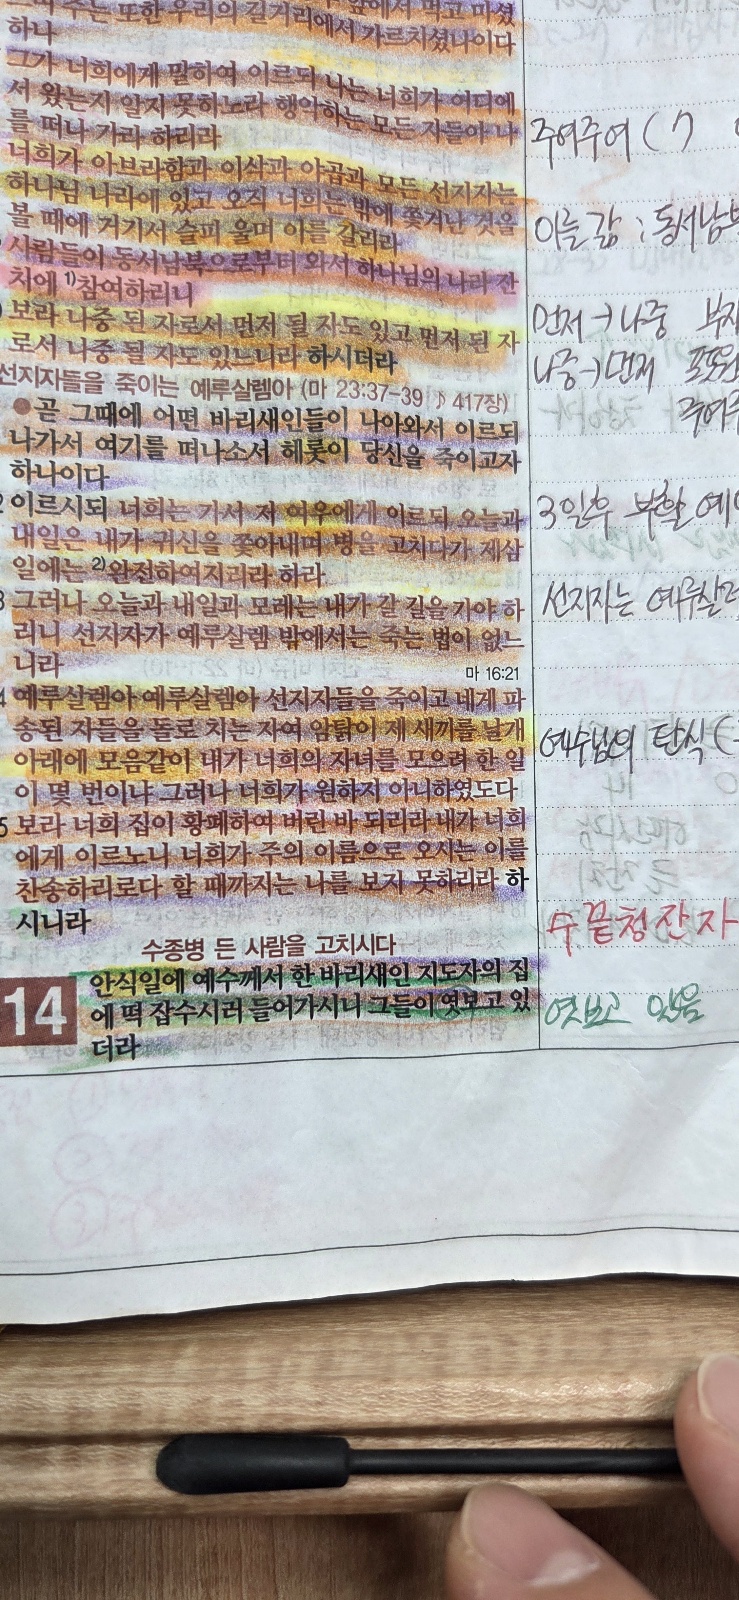 주는 또한 우리의 길거리에서 가르치셨나이다
하나
그가 너희에게 말하여 이르되 나는 너희가 어디에
서 왔는지 알지 못하노라 행악하는 모든 자들아 나
를 떠나 가라 하리라
너희가 아브라함과 이삭과 야곱과 모든 선지자는
하나님 나라에 있고 오직 너희는 밖에 쫓겨난 것을
볼 때에 거기서 슬피 울며 이를 갈리라
사람들이 동서남북으로부터 와서 하나님의 나라 잔
치에 1)참여하리니
보라 나중 된 자로서 먼저 될 자도 있고 먼저 된 자
로서 나중 될 자도 있느니라 하시더라
선지자들을 죽이는 예루살렘아 (마 23:37-39 ♪ 417장)
곧 그때에 어떤 바리새인들이 나아와서 이르되
나가서 여기를 떠나소서 헤롯이 당신을 죽이고자
하나이다
2 이르시되 너희는 가서 저 여우에게 이르되 오늘과
내일은 내가 귀신을 쫓아내며 병을 고치다가 제삼
일에는 2)완전하여지리라 하라
3 그러나 오늘과 내일과 모레는 내가 갈 길을 가야 하
리니 선지자가 예루살렘 밖에서는 죽는 법이 없느
니라
마 16:21
4 예루살렘아 예루살렘아 선지자들을 죽이고 네게 파
송된 자들을 돌로 치는 자여 암탉이 제 새끼를 날개
아래에 모음같이 내가 너희의 자녀를 모으려 한 일
이 몇 번이냐 그러나 너희가 원하지 아니하였도다
5 보라 너희 집이 황폐하여 버린 바 되리라 내가 너희
에게 이르노니 너희가 주의 이름으로 오시는 이를
찬송하리로다 할 때까지는 나를 보지 못하리라 하
시니라
수종병 든 사람을 고치시다
14 안식일에 예수께서 한 바리새인 지도자의 집
에 떡 잡수시러 들어가시니 그들이 엿보고 있
더라
주여주여 (
이를 갊 : 동서남북
먼저→나중
나중→먼저 포도원
주여주
3일후 부활 예
선지자는 예루살렘
예수님의 탄식 (
수끝청잔자
엿보고 있음